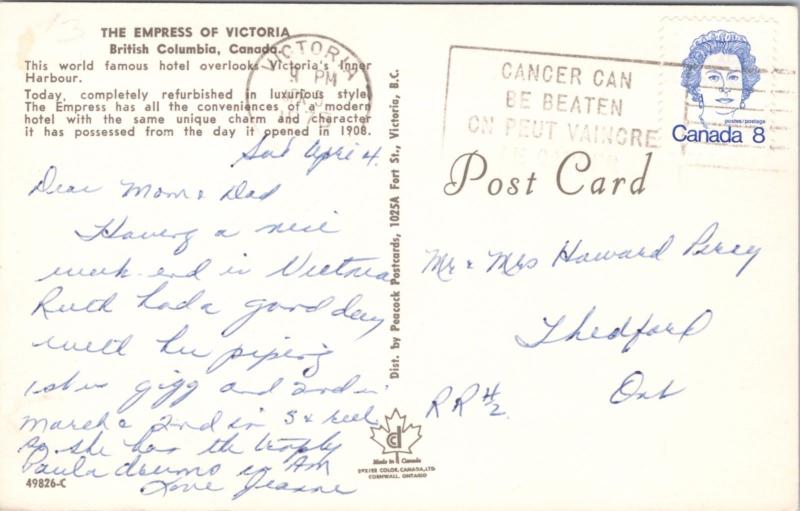 THE EMPRESS OF VICTORIA
British Columbia, Canada.
This world famous hotel overlooks Victoria's Inner
Harbour.
Today, completely refurbished in luxurious style,
The Empress has all the conveniences of a modern
hotel with the same unique charm and character
it has possessed from the day it opened in 1908.
VICTORIA
9 PM
CANCER CAN
BE BEATEN
ON PEUT VAINCRE
postes/postage
Canada 8
Post Card
Sat April 4.
Dear Mom & Dad
Having a nice
week-end in Victoria
Ruth had a good day
with her piping
1st in gigg and 2nd in
March & 2nd in S & reel
so she has the trophy
Paula drums in AM
Love Jeanne
Dist. by Peacock Postcards, 1025A Fort St., Victoria, B.C.
Mr & Mrs Howard Bray
Thedford
Ont
RR #2.
Made in Canada
CANADA, LTD
CORNWALL, ONTARIO
49826-C